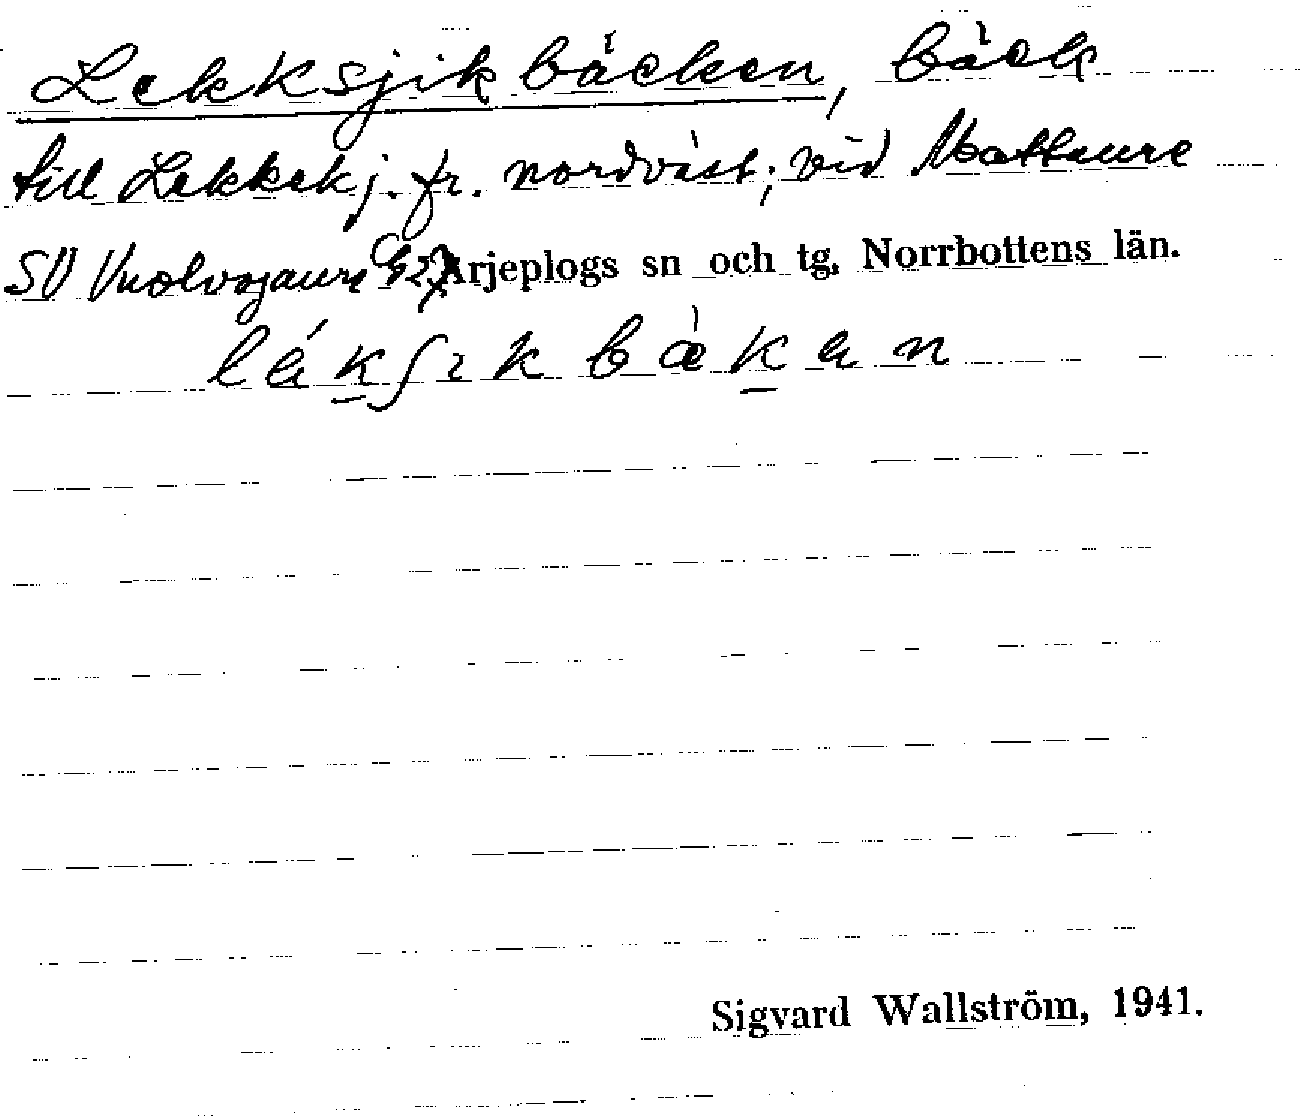 Lekksjikbäcken, bäck
till Lekkekj. fr. nordväst; vid Mattaure
SV Vuolvojaure Arjeplogs sn och tg. Norrbottens län.
Sigvard Wallström, 1941.